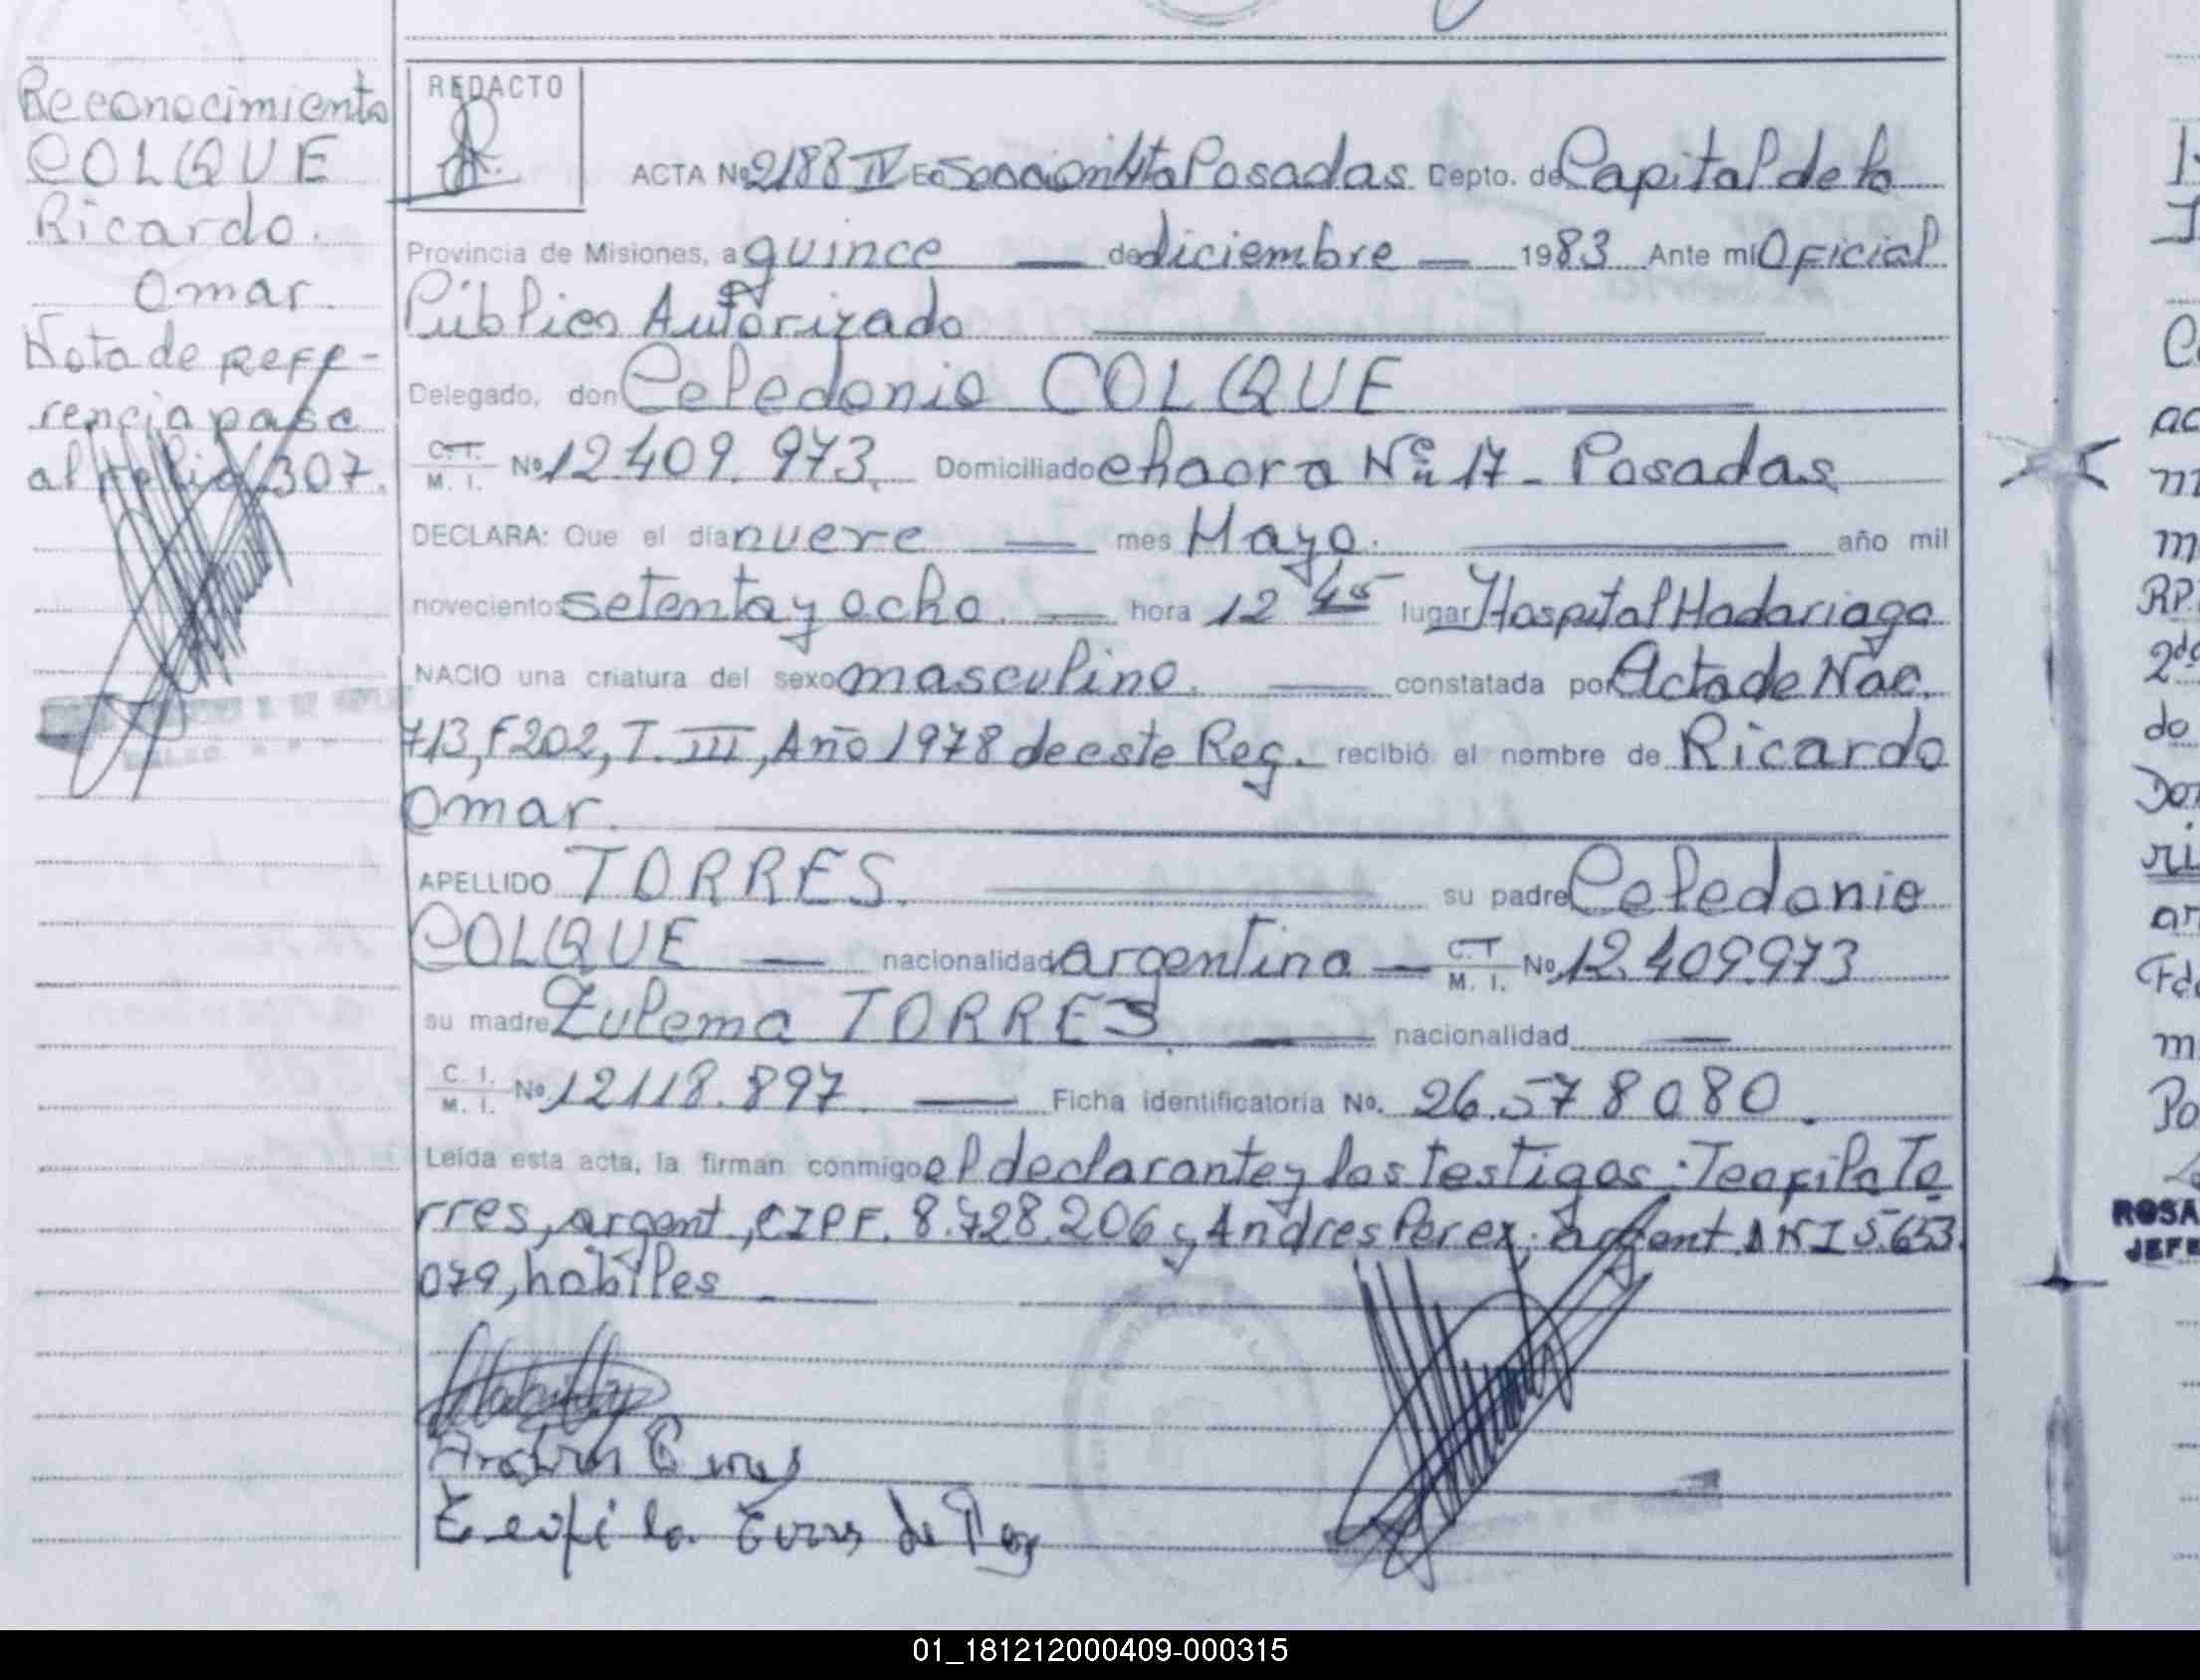 Reconocimiento
COLQUE
Ricardo.
Omar.
Nota de refe-
rencia pasa
al folio 307.
REDACTO
ACTA Nº 2183 IV En Sección 1ra Posadas Depto. de Capital de la
Provincia de Misiones, a quince — de diciembre — 1983 Ante mí Oficial
Público Autorizado
Delegado, don Celedonio COLQUE
C.I. M. I. Nº 12409.973. Domiciliado chacra Nº 17 - Posadas
DECLARA: Que el día nueve — mes Mayo. — año mil
novecientos setenta y ocho. — hora 12 45 lugar Hospital Madariaga
NACIO una criatura del sexo masculino. — constatada por Acta de Nac.
713, F202, T. III, Año 1978 de este Reg. recibió el nombre de Ricardo
Omar.
APELLIDO TORRES. — su padre Celedonio
COLQUE — nacionalidad argentina — C.I M. I. Nº 12.409.973
su madre Zulema TORRES. — nacionalidad —
C. I. M. I. Nº 12118.897 — Ficha identificatoria Nº. 26.578080.
Leída esta acta, la firman conmigo el declarante y los testigos: Teofila To
rres, argent., CIPF. 8.728.206 y Andres Perez, argent. DNI 5.653.
079, hábiles
Teofila Torres de
ROSA
JEFE
01_181212000409-000315